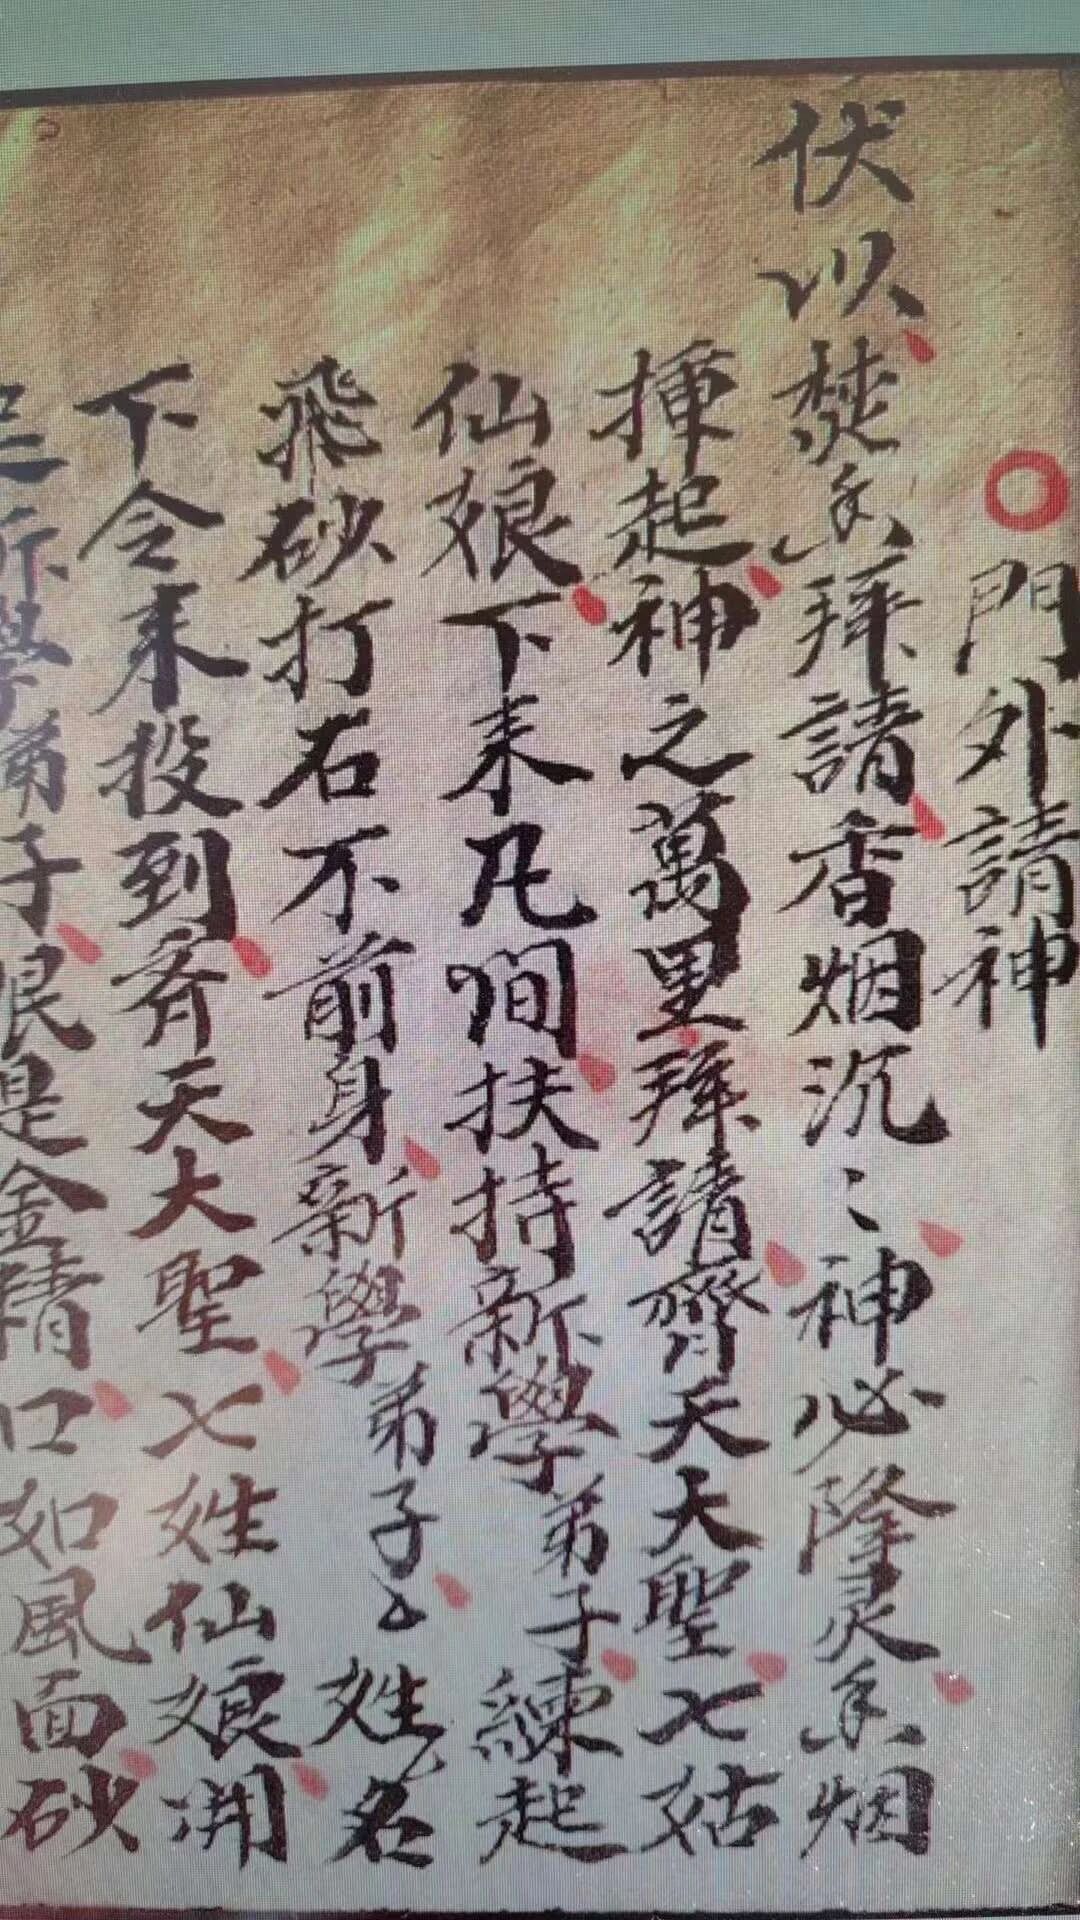 門外請神
伏以焚香拜請香烟沉〻神必降灵香烟
揮起神之萬里拜請齊天大聖七姑
仙娘下来凡间扶持新學弟子練起
飛砂打石不前身新學弟子〻姓名
下令来投到齐天大聖七姓仙娘開
新學弟子眼是金睛口如風面砂